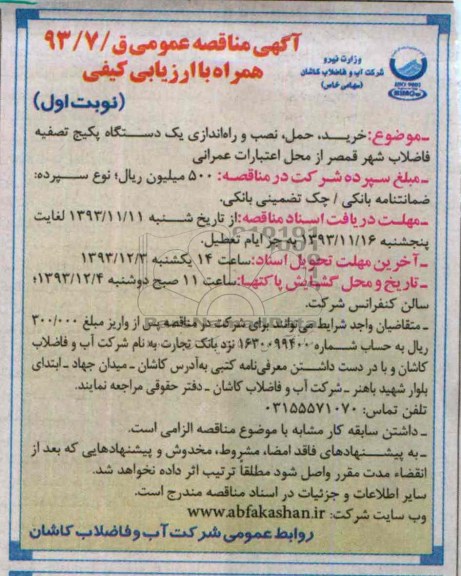 آگهی مناقصه عمومی ق/۹۳/۷
همراه با ارزیابی کیفی
(نوبت اول)
وزارت نیرو
شرکت آب و فاضلاب کاشان
(سهامی خاص)
ـ موضوع: خریـد، حمل، نصب و راه‌اندازی یک دسـتگاه پکیج تصفیه
فاضلاب شهر قمصر از محل اعتبارات عمرانی
ـ مبلغ سپرده شرکت در مناقصه: ۵۰۰ میلیون ریال؛ نوع سـپرده:
ضمانتنامه بانکی / چک تضمینی بانکی.
ـ مهلت دریافت اسناد مناقصه: از تاریخ شـنبه ۱۳۹۳/۱۱/۱۱ لغایت
پنجشنبه ۱۳۹۳/۱۱/۱۶ به جز ایام تعطیل.
ـ آخرین مهلت تحویل اسناد: ساعت ۱۴ یکشنبه ۱۳۹۳/۱۲/۳
ـ تاریخ و محل گشایش پاکتها: ساعت ۱۱ صبح دوشنبه ۱۳۹۳/۱۲/۴؛
سالن کنفرانس شرکت.
ـ متقاضیان واجد شرایط می‌توانند برای شرکت در مناقصه پس از واریز مبلغ ۳۰۰/۰۰۰
ریال به حساب شماره ۱۶۳۰۰۹۹۴۰۰ نزد بانک تجارت به نام شرکت آب و فاضلاب
کاشان و با در دست داشتـن معرفی‌نامه کتبی به‌آدرس کاشان ـ میدان جهاد ـ ابتدای
بلوار شهید باهنر ـ شرکت آب و فاضلاب کاشان ـ دفتر حقوقی مراجعه نمایند.
تلفن تماس: ۰۳۱۵۵۵۷۱۰۷۰
ـ داشتن سابقه کار مشابه با موضوع مناقصه الزامی است.
ـ به پیشـنهادهای فاقد امضا، مشروط، مخدوش و پیشنهادهایی که بعد از
انقضاء مدت مقرر واصل شود مطلقاً ترتیب اثر داده نخواهد شد.
سایر اطلاعات و جزئیات در اسناد مناقصه مندرج است.
وب سایت شرکت: www.abfakashan.ir
روابط عمومی شرکت آب و فاضلاب کاشان